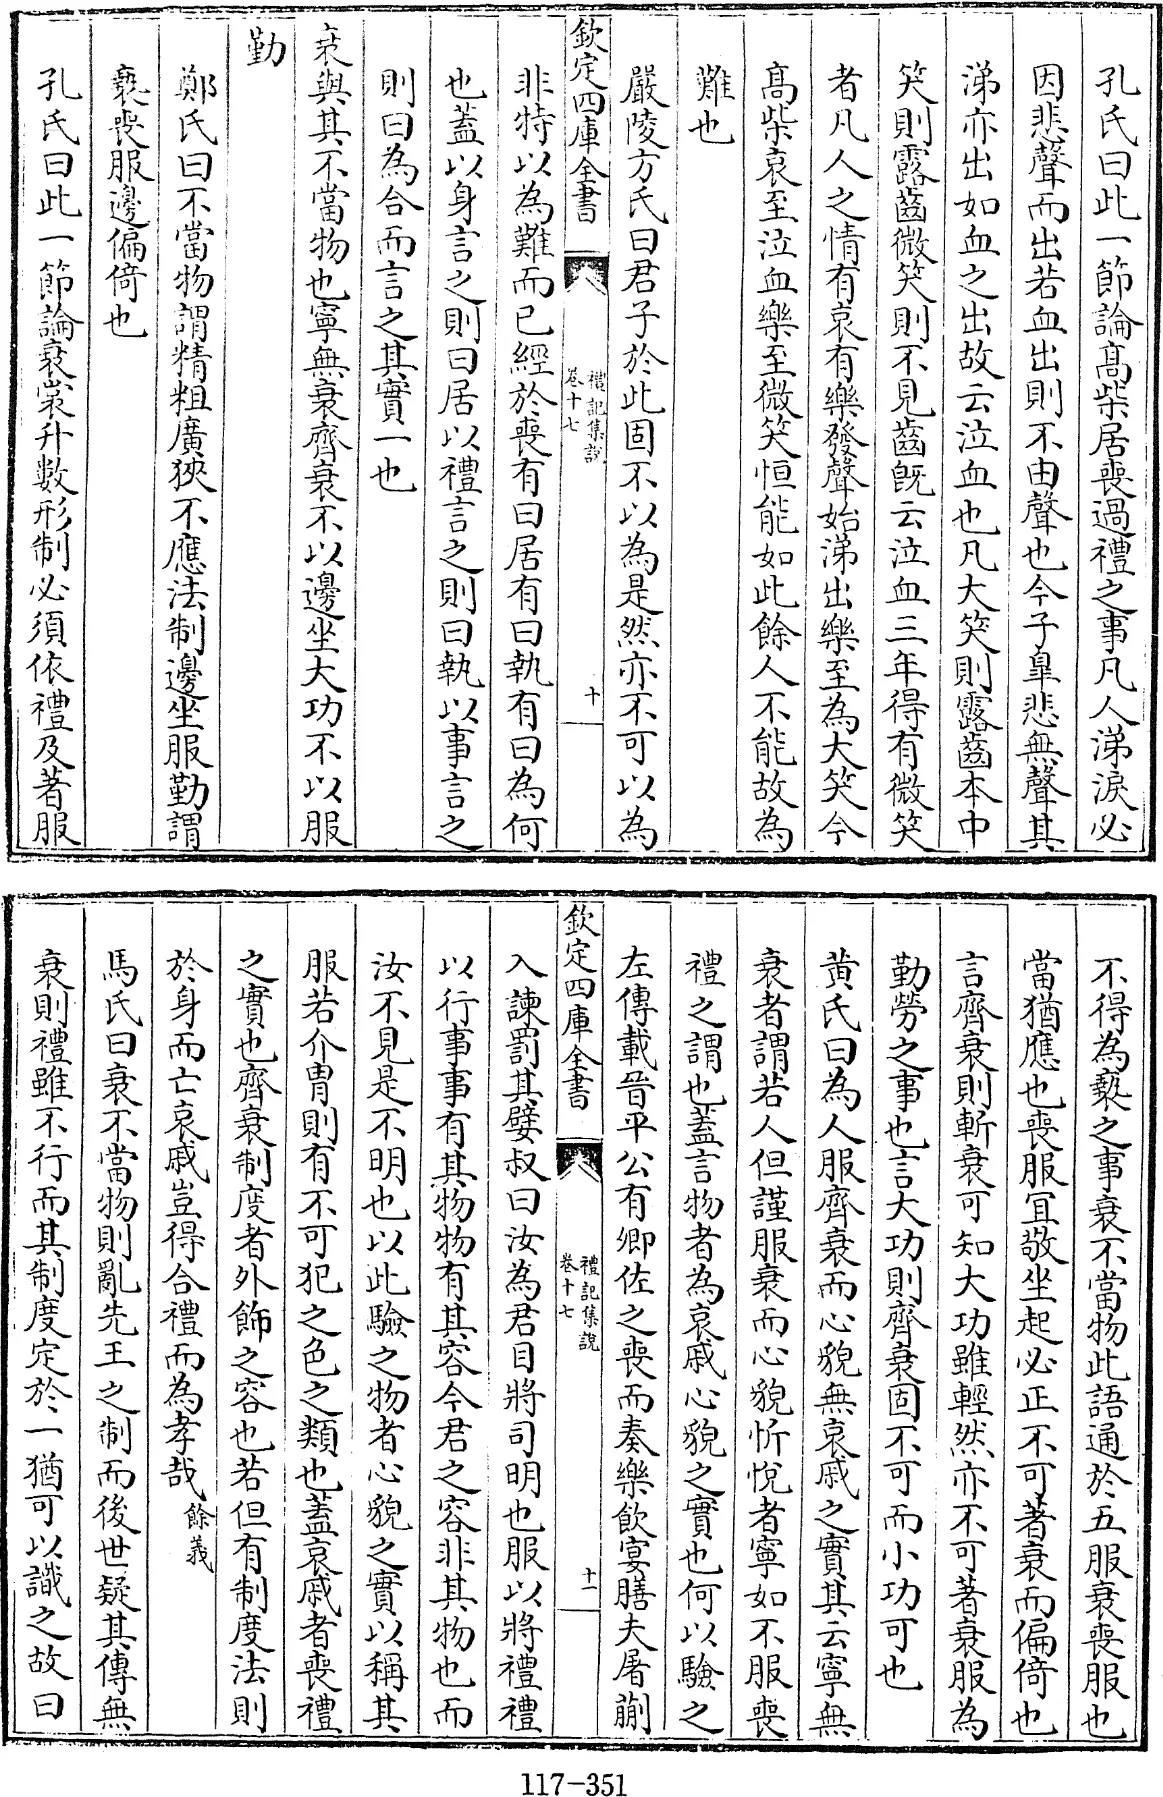 孔氏曰此一節論髙柴居喪過禮之事凡人涕淚必
因悲聲而出若血出則不由聲也今子臯悲無聲其
涕亦出如血之出故云泣血也凡大笑則露齒本中
笑則露齒微笑則不見齒旣云泣血三年得有微笑
者凡人之情有哀有樂發聲始涕出樂至為大笑今
髙柴哀至泣血樂至微笑恒能如此餘人不能故為
難也
嚴陵方氏曰君子於此固不以為是然亦不可以為
欽定四庫全書
禮記集說
卷十七
十
非特以為難而已經於喪有曰居有曰執有曰為何
也蓋以身言之則曰居以禮言之則曰執以事言之
則曰為合而言之其實一也
衰與其不當物也寧無衰齊衰不以邊坐大功不以服
勤
鄭氏曰不當物謂精粗廣狹不應法制邊坐服勤謂
褻喪服邊偏倚也
孔氏曰此一節論衰裳升數形制必須依禮及著服
不得為褻之事衰不當物此語通於五服衰喪服也
當猶應也喪服宜敬坐起必正不可著衰而偏倚也
言齊衰則斬衰可知大功雖輕然亦不可著衰服為
勤勞之事也言大功則齊衰固不可而小功可也
黄氏曰為人服齊衰而心貌無哀戚之實其云寧無
衰者謂若人但謹服衰而心貌忻悅者寧如不服喪
禮之謂也蓋言物者為哀戚心貌之實也何以驗之
左傳載晉平公有卿佐之喪而奏樂飲宴膳夫屠蒯
欽定四庫全書
禮記集說
卷十七
十一
入諫罰其嬖叔曰汝為君目將司明也服以將禮禮
以行事事有其物物有其容今君之容非其物也而
汝不見是不明也以此驗之物者心貌之實以稱其
服若介胄則有不可犯之色之類也蓋哀戚者喪禮
之實也齊衰制度者外飾之容也若但有制度法則
於身而亡哀戚豈得合禮而為孝哉餘義
馬氏曰衰不當物則亂先王之制而後世疑其傳無
衰則禮雖不行而其制度定於一猶可以識之故曰
117-351